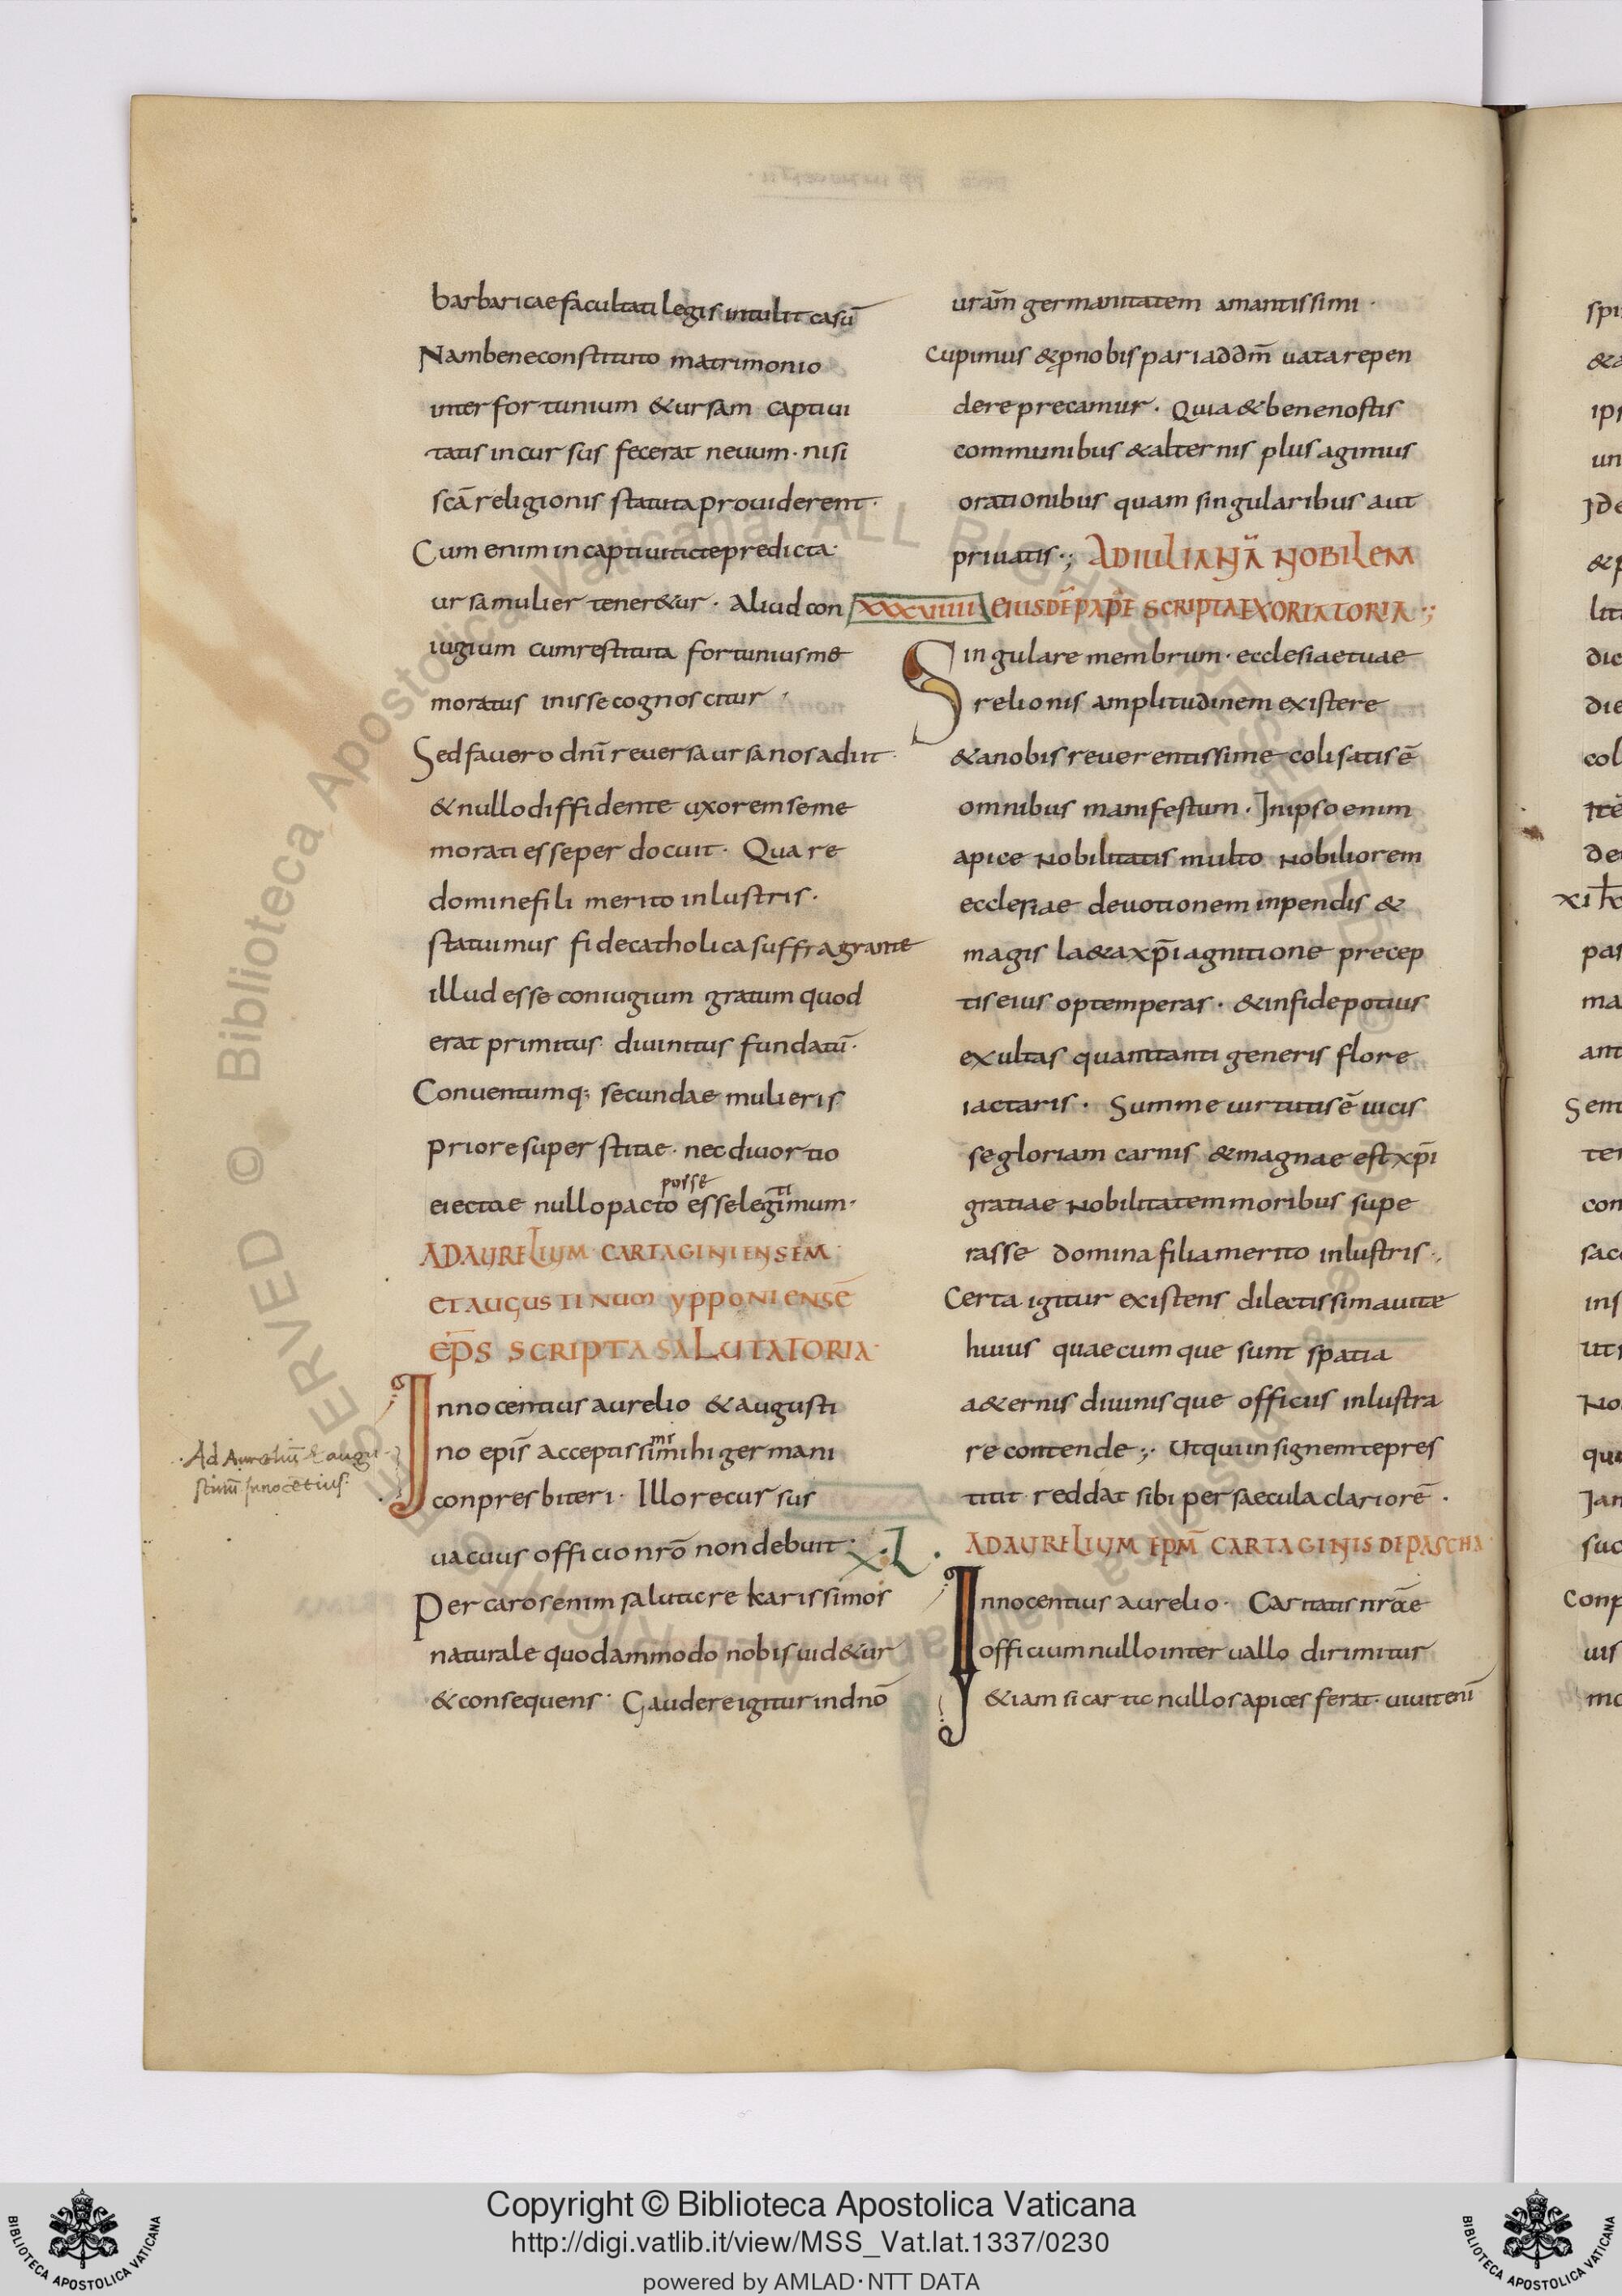 barbaricae facultati legis intulit casū
Nam bene constituto matrimonio
inter fortunium & ursam captiui
tatis incursus fecerat neuum · nisi
scā religionis statuta prouiderent ·
Cum enim in captiuitate predicta·
ursa mulier tener&ur · aliud con
iugium cum restituta fortunius me
moratus inisse cognoscitur ·
Sed fauore dnī reuersa ursa nos adiit ·
& nullo diffidente uxorem se me
morati esse perdocuit · Quare
domine fili merito inlustris ·
statuimus fide catholica suffragrante
illud esse coniugium gratum quod
erat primitus diuinitus fundatū ·
Conuentumq; secundae mulieris
priore superstitae · nec diuortio
posse
eiectae nullo pacto esse legitimum ·
AD AURELIUM CARTAGINIENSEM ·
ET AUGUSTINUM YPPONIENSĒ
EP̄S SCRIPTA SALUTATORIA ·
Innocentius aurelio & augusti
no epīs acceptissimi mihi germani
Ad Aureliū & augu
stinū Innocētius·
conpresbiteri · Illo recursus
uacuus officio nrō non debuit ·
Per caros enim salutare karissimos
naturale quodammodo nobis uid&ur
& consequens · Gaudere igitur in dnō
urām germanitatem amantissimi ·
cupimus & p nobis pari ad dm̄ uata repen
dere precamur · Quia & bene nostis
communibus & alternis plus agimus
orationibus quam singularibus aut
priuatis ·; AD IULIANĀ NOBILEM
XXXVIIII EIUSDĒ PAPĒ SCRIPTA EXORTATORIA ·;
Singulare membrum · ecclesiae tuae
relionis amplitudinem existere
& a nobis reuerentissime coli satis ē
omnibus manifestum · In ipso enim
apice nobilitatis multo nobiliorem
ecclesiae deuotionem inpendis &
magis la&a xpī agnitione precep
tis eius optemperas · & in fide potius
exultas quam tanti generis flore
iactaris · Summe uirtutis ē uicis
se gloriam carnis & magnae est xpī
gratiae nobilitatem moribus supe
rasse domina filia merito inlustris ·
Certa igitur existens dilectissima uitae
huius quaecumque sunt spatia
a&ernis diuinisque officiis inlustra
re contende ·; Ut qui insignem te pres
titit reddat sibi per saecula clariorē ·
X·L· AD AURELIUM EPM̄ CARTAGINIS DE PASCHA
Innocentius aurelio · Caritatis nrāe
officium nullo interuallo dirimitur
& iam si cartae nullos apices ferat · uiuit enī
Copyright © Biblioteca Apostolica Vaticana
http://digi.vatlib.it/view/MSS_Vat.lat.1337/0230
powered by AMLAD·NTT DATA
BIBLIOTECA APOSTOLICA VATICANA
BIBLIOTECA APOSTOLICA VATICANA